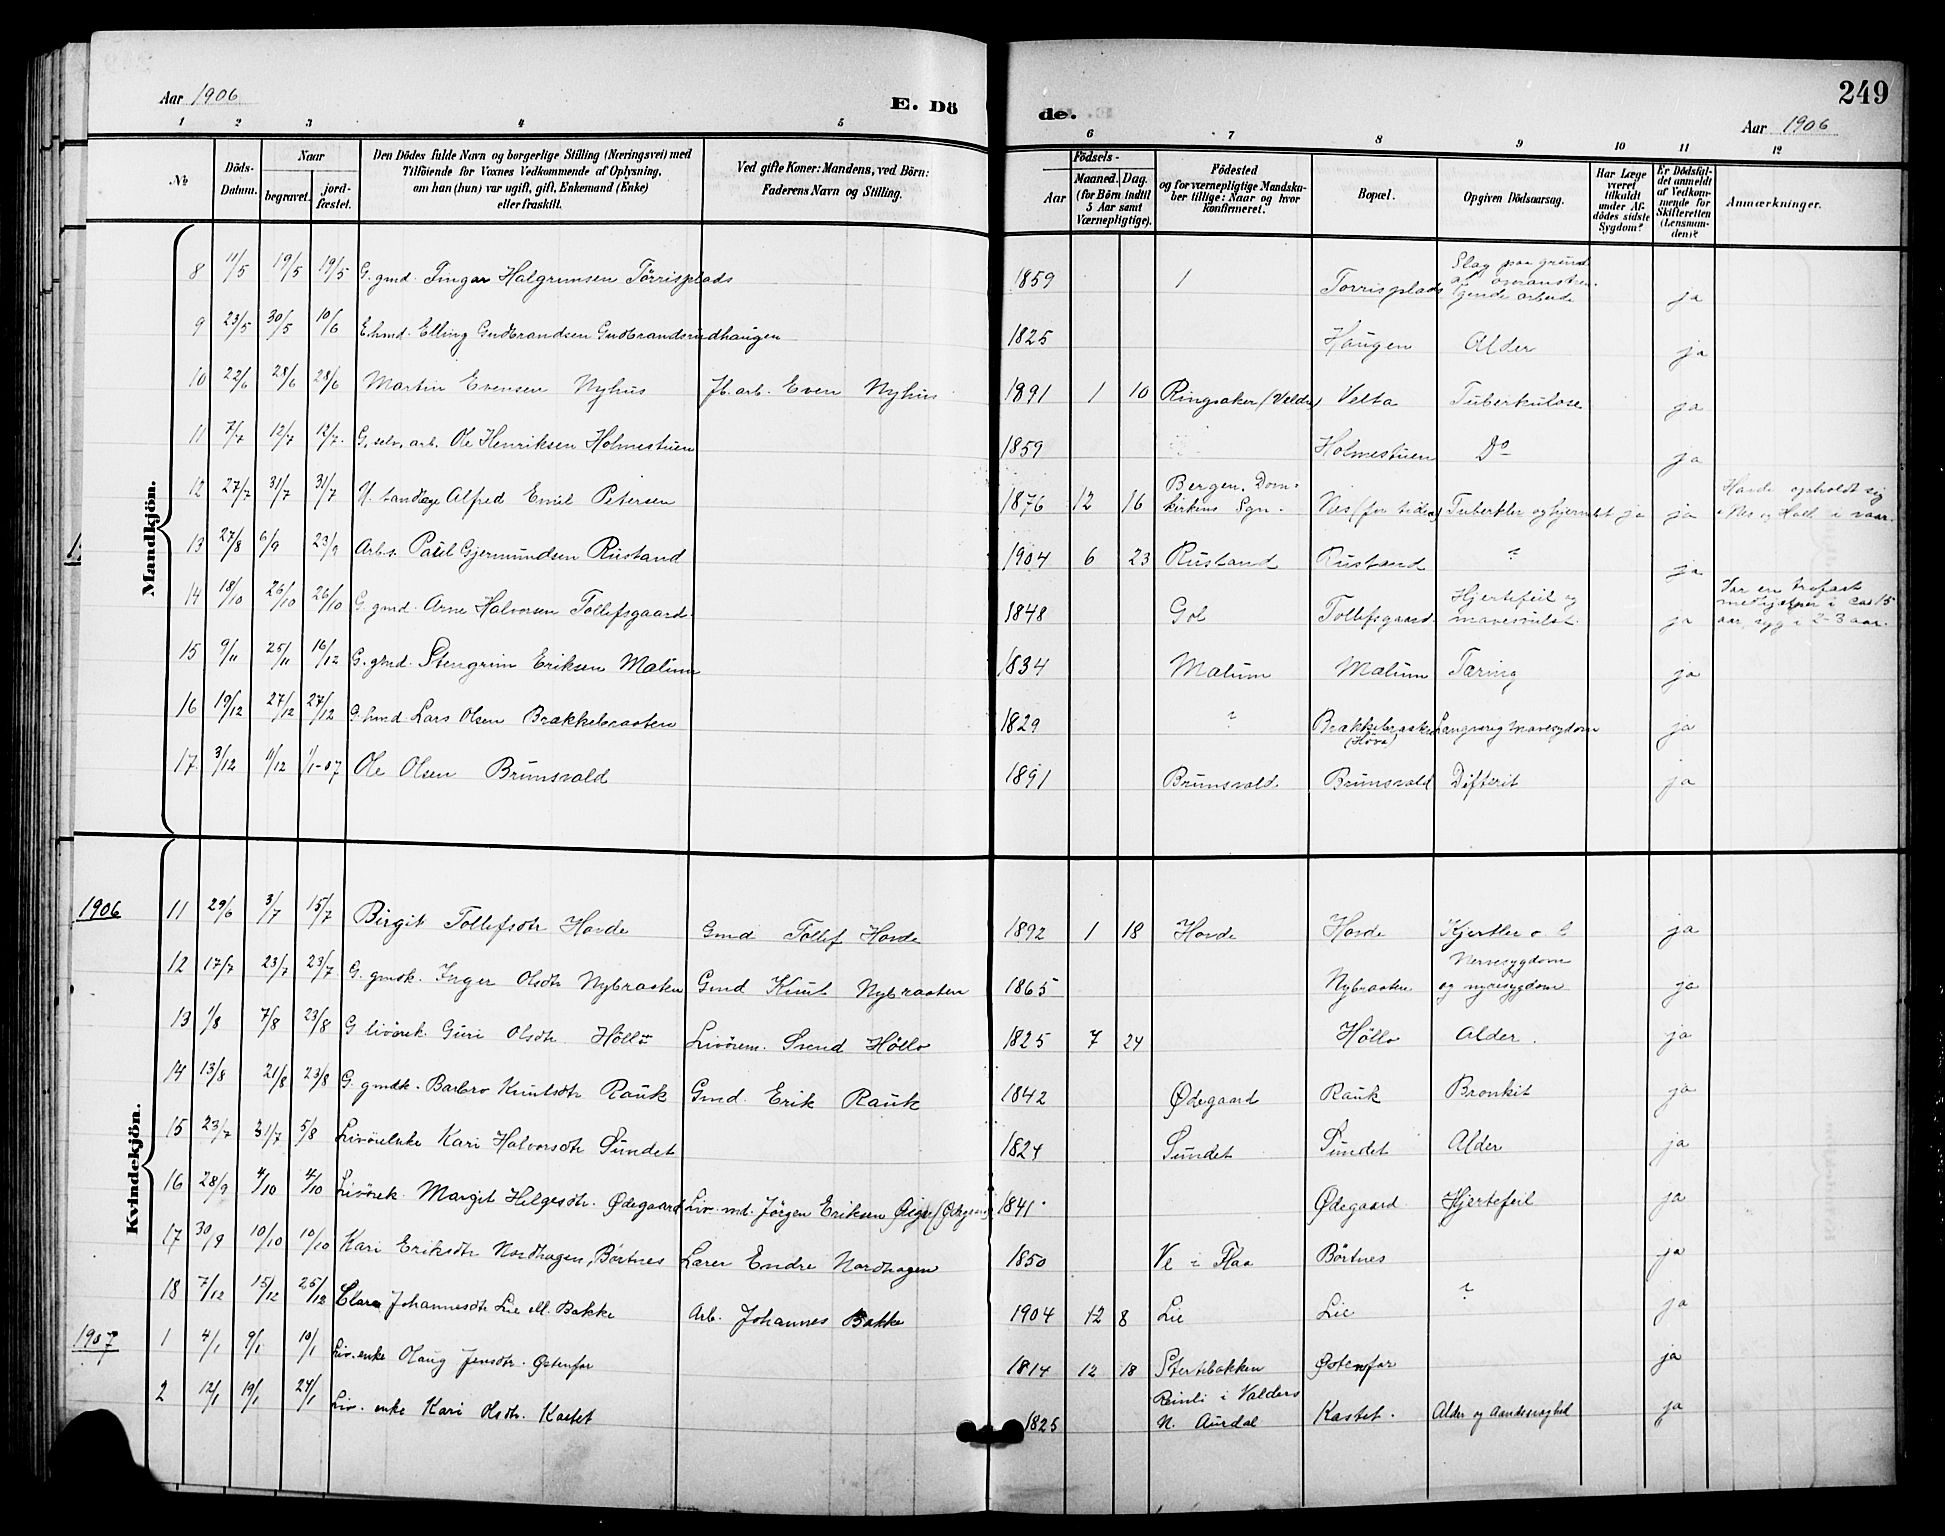 249
Aar 1906
E. Dö
de.
Aar 1906
1 2 3 4 5 6 7 8 9 10 11 12
No
Döds-Datum.
Naar
begravet.
jord-fæstet.
Den Dödes fulde Navn og borgerlige Stilling (Næringsvei) med
Tilföiende for Voxnes Vedkommende af Oplysning,
om han (hun) var ugift, gift, Enkemand (Enke)
eller fraskilt.
Ved gifte Koner: Mandens, ved Börn:
Faderens Navn og Stilling.
Födsels-
Aar
Maaned. Dag.
(for Börn indtil
5 Aar samt
Værnepligtige).
Födested
og for værnepligtige Mandska-
ber tillige: Naar og hvor
konfirmeret.
Bopæl.
Opgiven Dödsaarsag.
Har Læge
været
tilkaldt
under Af-
dödes sidste
Sygdom?
Er Dödsfal-
det anmeldt
af Vedkom-
mende for
Skifteretten
(Lensman-
den)?
Anmærkninger.
Mandkjön.
8 11/5 19/5 19/5 G. gmd. Ingar Halgrimsen Törrisplads 1859 / Torrisplads Slag paa grund af overanstrengende arbeide ja
9 23/5 30/5 10/6 E. hmd. Elling Gudbrandsen Gudbrandsrudhaugen 1825 Haugen Alder ja
10 22/6 28/6 28/6 Martin Evensen Nyhus Jb. arb. Even Nyhus 1891 1 10 Ringsaker (Veldre) Velta Tuberkulose ja
11 7/7 12/7 12/7 G. selv. arb. Ole Henriksen Holmestuen 1859 Holmestuen Do ja
12 27/7 31/7 31/7 U. tandlæge Alfred Emil Petersen 1876 12 16 Bergen. Dom-kirkens Sgn. Nes (for tiden) ja ja Havde opholdt sig i Nes og Hall. i vaar.
13 27/8 6/9 23/9 Arbs. Paul Gjermundsen Rustand 1904 6 23 Rustand Rustand ? ja
14 18/10 26/10 26/10 G. gmd. Arne Halvorsen Tollefsgaard 1848 Gol Tollefsgaard Hjertefeil og mavesvulst ja Var en trofast medhjælper i ca 15 aar, syg i 2-3 aar.
15 9/11 25/11 16/12 G. gmd. Stengrim Eriksen Malum 1834 Malum Malum Tæring ja
16 19/12 27/12 27/12 G. hmd. Lars Olsen Brækkebraaten 1829 ? Brækkebraaten Langvarig mavesygdom ja
17. 3/12 11/12 1/1-07 Ole Olsen Brunsvald 1891 Brunsvald Brunsvald Difterit ja
Kvindekjön.
1906 11 29/6 3/7 15/7 Birgit Tollefsdtr Hovde Gmd Tollef Hovde 1892 1 18 Hovde Hovde Kjertler ja
12 17/7 23/7 23/7 G. gmdk. Inger Olsdtr Nybraaten Gmd Knut Nybraaten 1865 Nybraaten Nervesygdom og nyresygdom ja
13 1/8 7/8 23/8 G livörek. Guri Olsdtr Höllo Livörem. Svend Höllo 1825 7 24 Höllo Alder. ja
14 13/8 21/8 23/8 G. gmdk. Barbro Knutsdtr Rauk Gmd. Erik Rauk 1842 Ødegaard Rauk Bronkit ja
15 23/7 31/7 5/8 Livöreenke Kari Halvorsdtr Sundet 1824 Sundet Sundet Alder ja
16 28/9 4/10 4/10 Livörek. Margit Helgesdtr. Ødegaard Liv. md. Jörgen Eriksen 1841 Ødegaard Hjertefeil ja
17 30/9 10/10 10/10 Kari Eriksdtr Nordhagen, Börtnes Lærer Endre Nordhagen 1850 Ve i Flaa Börtnes ja
18 7/12 15/12 25/12 Clara Johannesdtr Lie M. Bakke Arb. Johannes Bakke 1904 12 8 Lie Lie ? ja
1907 1 4/1 9/1 10/1 Liv. enke Olaug Jensdtr. Østenfor 1814 12 18 Stertebakken Østenfor ja
2 12/1 19/1 24/1 Liv. enke Kari Olsdtr. Kastet 1825 Reinli i Valders N. Aurdal Kastet. Alder og Aandssvaghed ja